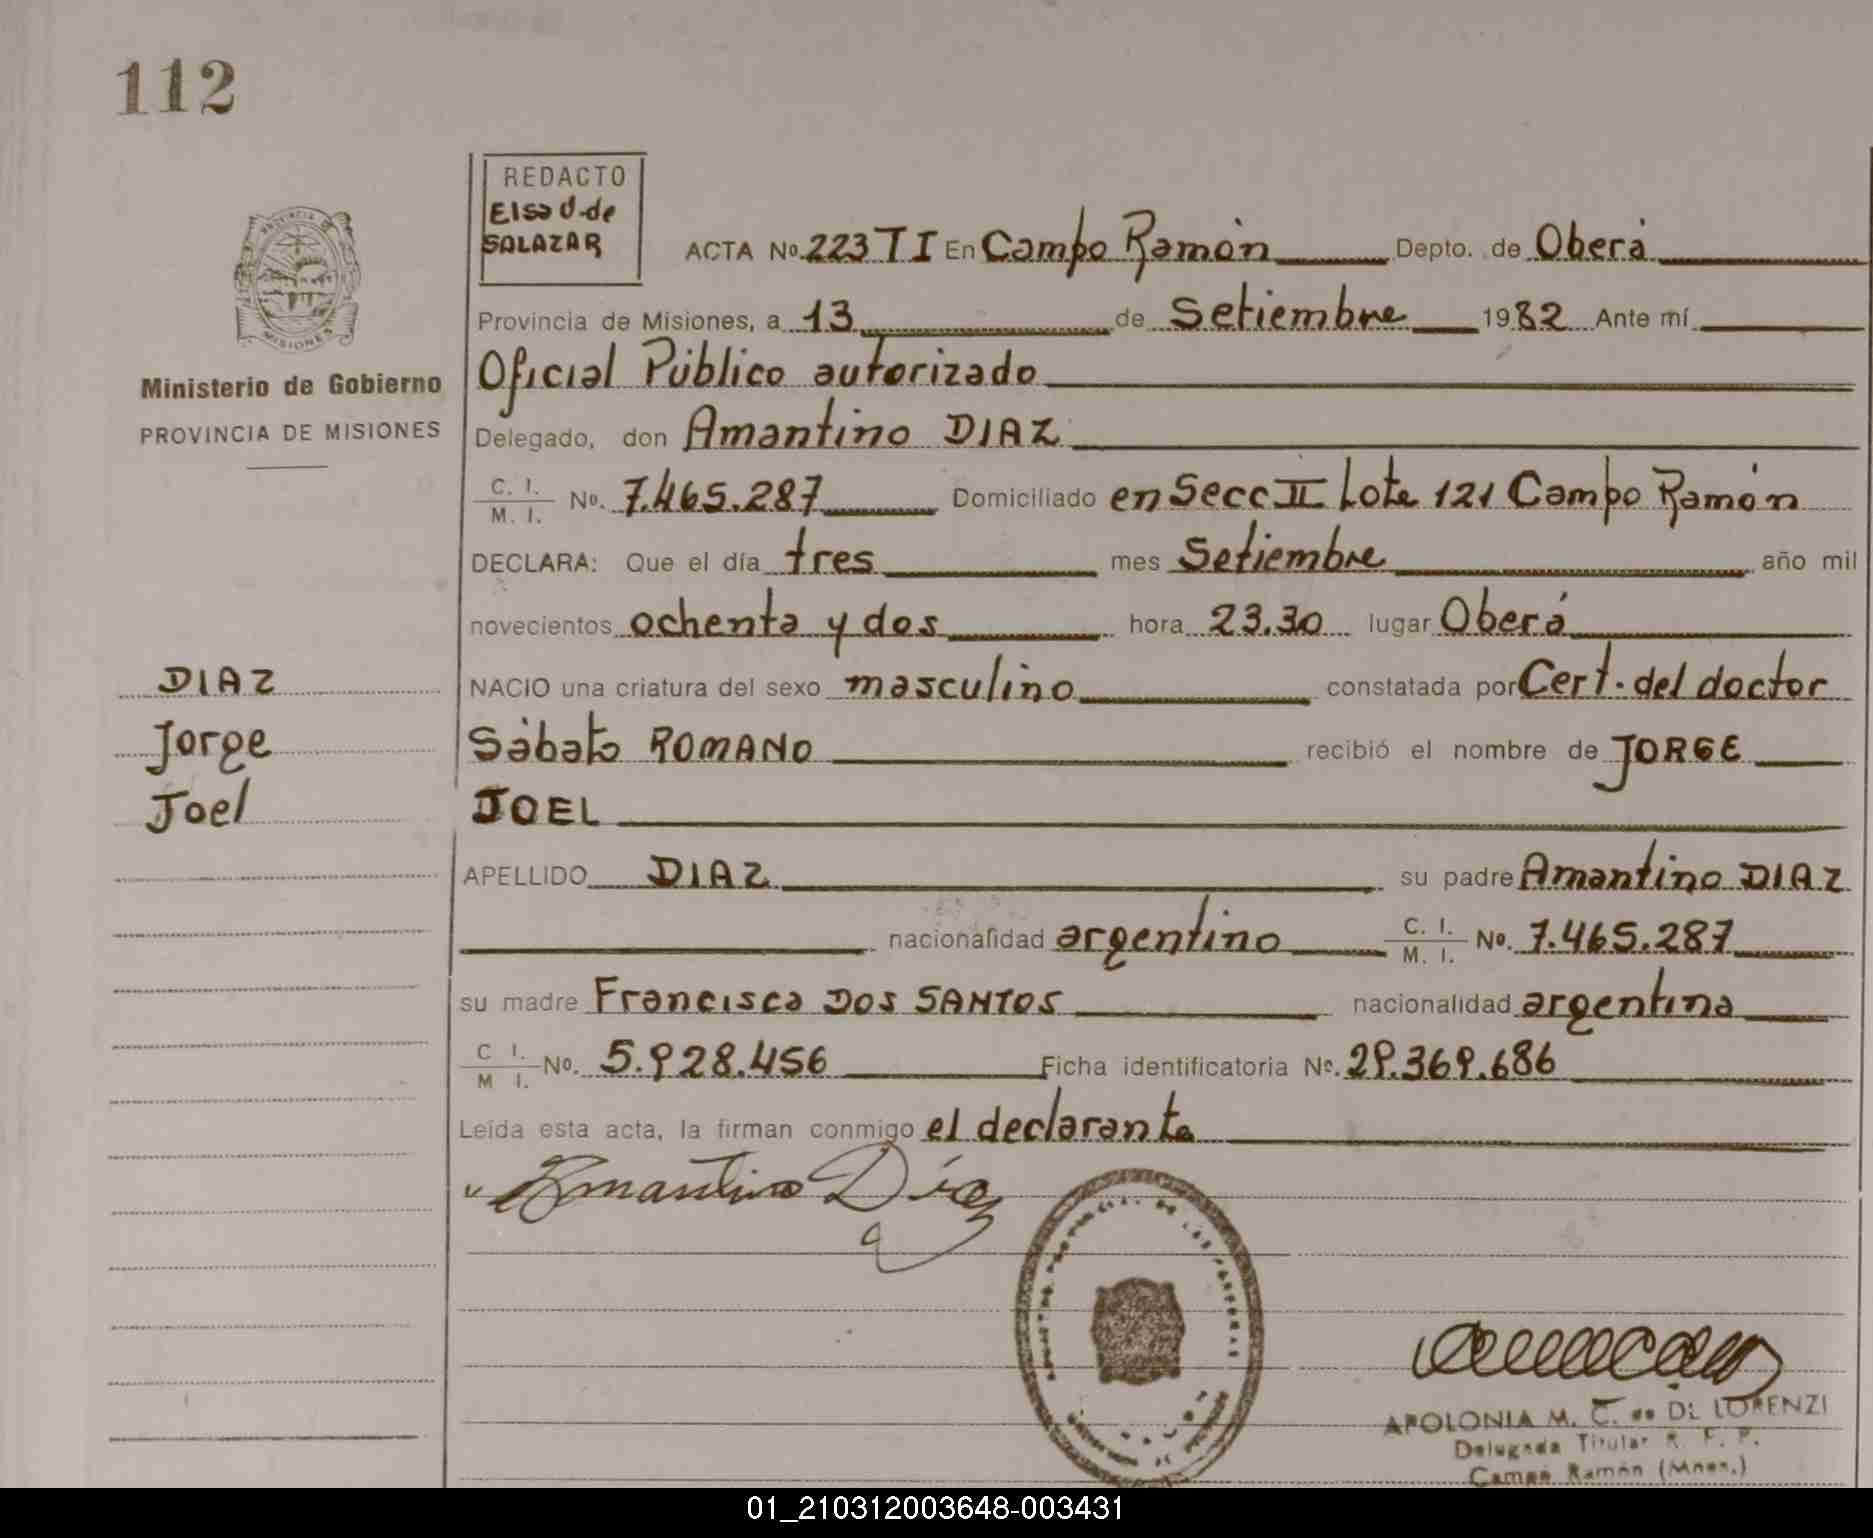 112
REDACTO
Elsa U. de
SALAZAR
PROVINCIA DE
MISIONES
Ministerio de Gobierno
PROVINCIA DE MISIONES
ACTA Nº 223 TI En Campo Ramón Depto. de Oberá
Provincia de Misiones, a 13 de Setiembre 1982 Ante mí
Oficial Público autorizado
Delegado, don Amantino DIAZ
C. I. / M. I. Nº. 7.465.287 Domiciliado en Secc II Lote 121 Campo Ramón
DECLARA: Que el día tres mes Setiembre año mil
novecientos ochenta y dos hora 23.30 lugar Oberá
NACIO una criatura del sexo masculino constatada por Cert. del doctor
Sábato ROMANO recibió el nombre de JORGE
JOEL
DIAZ
Jorge
Joel
APELLIDO DIAZ su padre Amantino DIAZ
nacionalidad argentino C. I. / M. I. Nº. 7.465.287
su madre Francisca DOS SANTOS nacionalidad argentina
C I. / M I. Nº. 5.928.456 Ficha identificatoria Nº. 29.369.686
Leída esta acta, la firman conmigo el declarante
Amantino Díaz
APOLONIA M. C. de DE LORENZI
Delegada Titular R. P. P.
Campo Ramón (Mnes.)
01_210312003648-003431